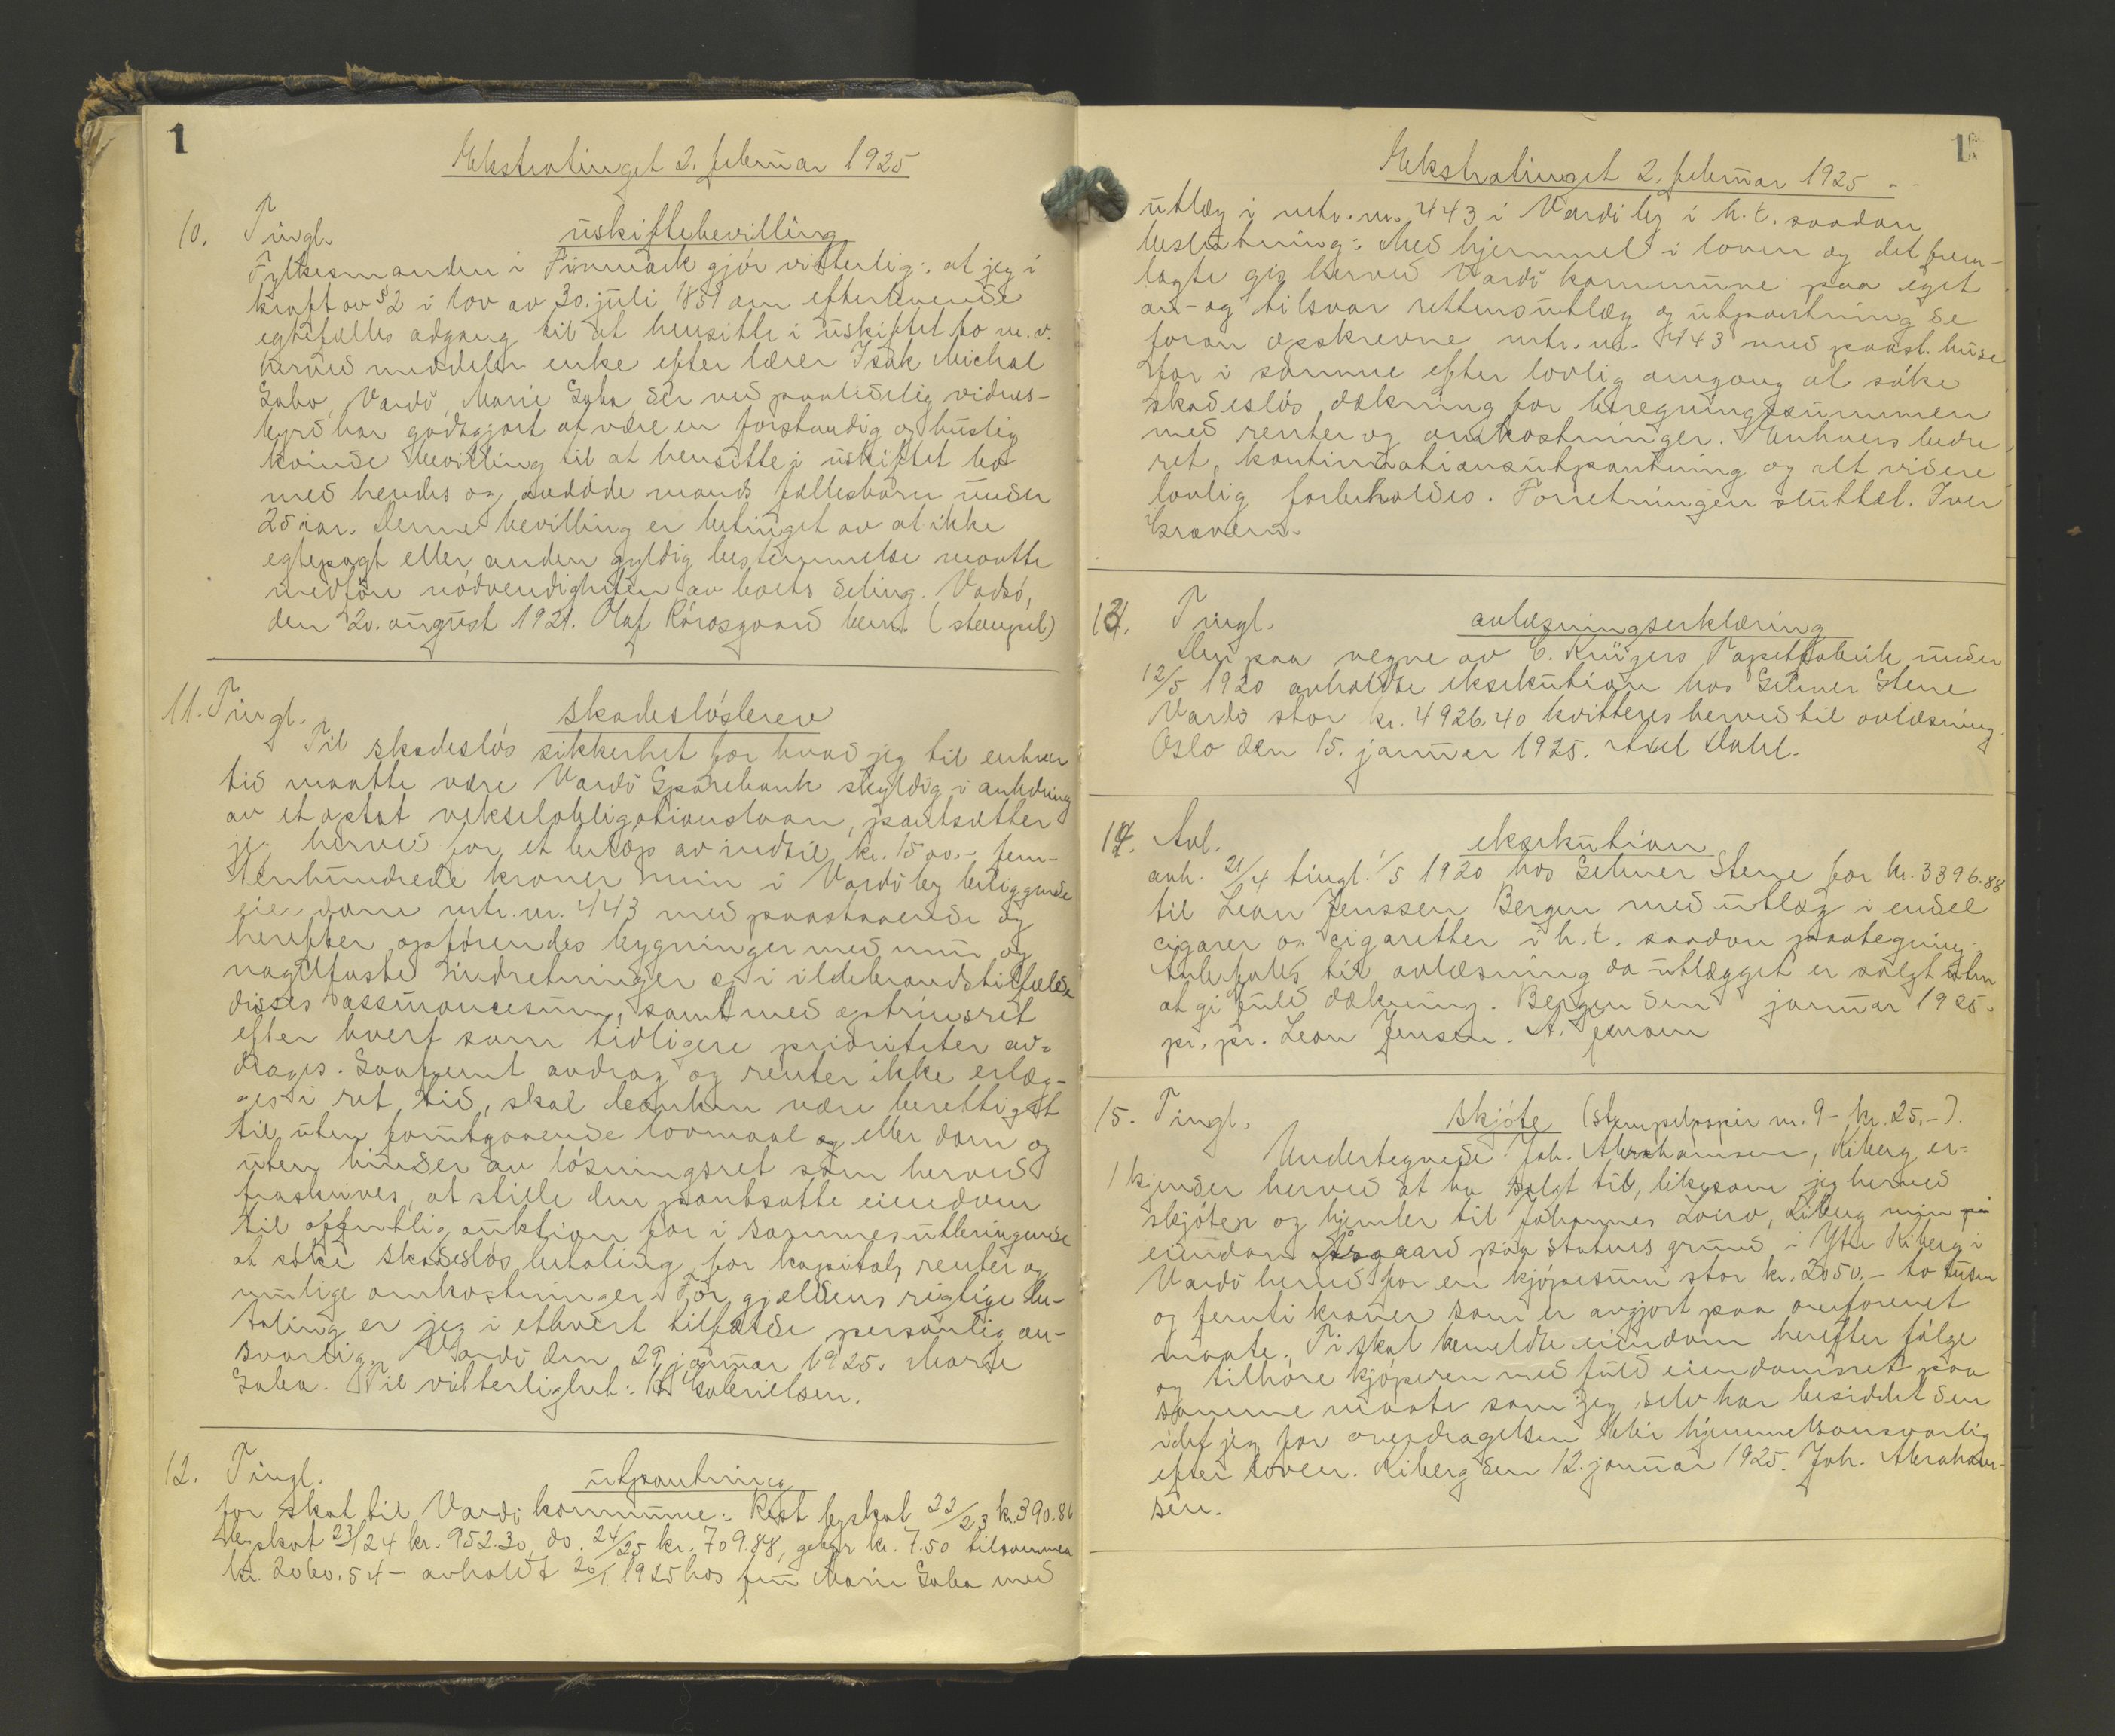 1
Ekstratinget 2. februar 1925
10. Tingl. uskiftebevilling
Fylkesmanden i Finmark gjör vitterlig: at jeg i
kraft av § 2 i lov av 30. juli 1851 om efterlevende
egtefælles adgang til at hensitte i uskiftet bo m.v.
herved meddeler enke efter lærer Isak Michal
Saba, Vardö, Marie Saba der ved paalidelig vidnes-
byrd har godtgjort at være en forstandig og huslig
kvinde bevilling til at hensitte i uskiftet bo
med hendes og avdöde mands fællesbarn under
25 aar. Denne bevilling er betinget av at ikke
egtepagt eller anden gyldig bestemmelse maatte
medföre nödvendigheten av boets deling. Vadsö,
den 20. august 1921. Olaf Rörosgaard bem. (stempel)
11. Tingl. skadeslösbrev
Til skadeslös sikkerhet for hvad jeg til enhver
tid maatte være Vardö Sparebank skyldig i anledning
av et optat vekselobligationslaan, pantsætter
jeg herved for et belöp av indtil kr. 1500.- fem-
tenhundrede kroner min i Vardö by beliggende
eiendom mtr. nr. 443 med paastaaende og
herefter opförendes bygninger med mur og
nagelfaste indretninger og i ildebrandstilfælde
disses assurancesum, samt med optrinsret
efter hvert som tidligere prioriteter av-
drages. Saafremt avdrag og renter ikke erlæg-
ges i ret tid, skal banken være berettiget
til, uten forutgaaende lovmaal og eller dom og
uten hinder av lösningsret som herved
fraskrives, at stille den pantsatte eiendom
til offentlig auktion for i sammes utbringende
at söke skadeslös betaling for kapital, renter og
mulige omkostninger. For gjældens rigtige be-
taling er jeg i ethvert tilfælde personlig an-
svarlig. Vardö den 29 januar 1925. Marie
Saba. Til vitterlighet: Gabrielsen.
12. Tingl. utpantning
for skat til Vardö kommune: Rest byskat 22/23 kr. 390.86
byskat 23/24 kr. 952.30, do. 24/25 kr. 709.88, gebyr kr. 7.50 tilsammen
kr. 2060.54 - avholdt 20/1 1925 hos fru Marie Saba med
1
Ekstratinget 2. februar 1925
utlæg i mtr. nr. 443 i Vardö by i h. t. saadan
beslutning: Med hjemmel i loven og det frem-
lagte gis herved Vardö kommune paa eget
an- og tilsvar rettens utlæg og utpantning de
foran opskrevne mtr. nr. 443 med paast. huse
for i samme efter lovlig omgang at söke
skadeslös dækning for beregningssummen
med renter og omkostninger. Enhvers bedre
ret, kontinuationsutpantning og alt videre
lovlig forbeholdes. Forretningen sluttet. Iver
13. Tingl. avlæsningserklæring
Den paa vegne av C. Krügers Tapetfabrik under
12/5 1920 avholdte eksekution hos Selmer Stene
Vardö stor kr. 4926.40 kvitteres herved til avlæsning.
Oslo den 15. januar 1925. Axel Dahl.
14. Avl. eksekution
avh. 21/4 tingl. 1/5 1920 hos Selmer Stene for kr. 3396.88
til Leon Jenssen Bergen med utlæg i endel
cigarer og cigaretter i h. t. saadan paategning:
Anbefales til avlæsning da utlægget er solgt uten
at gi fuld dækning. Bergen den januar 1925.
pr. pr. Leon Jensen. A.
15. Tingl. skjöte (stempelpapir nr. 9 - kr. 25.-).
Undertegnede Joh. Abrahamsen, Kiberg er-
kjender herved at ha solgt til, likesom jeg herved
skjöter og hjemler til Johannes Zoivo, Kiberg min
eiendom Åsgaard paa statens grund i Ytre Kiberg i
Vardö herred for en kjöpesum stor kr. 2050.- to tusen
og femti kroner som er avgjort paa omforenet
maate. Ti skal bemeldte eiendom herefter fölge
og tilhöre kjöperen med fuld eiendomsret paa
samme maate som jeg selv har besiddet den
idet jeg for overdragelsen blir hjemmelsansvarlig
efter loven. Kiberg den 12. januar 1925. Joh. Abraham-
sen.